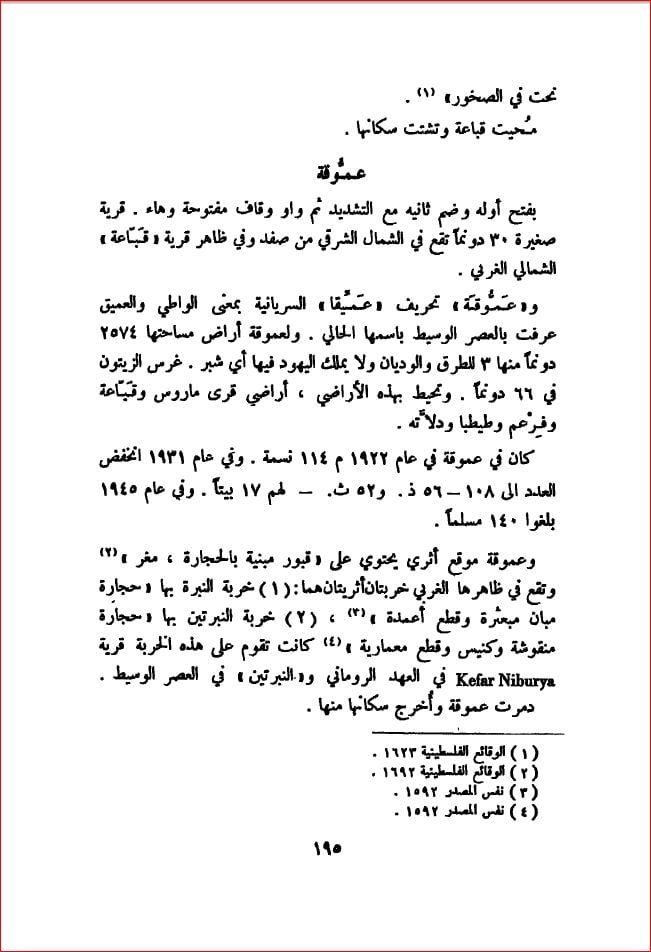 نحت في الصخور» (١) .
مُحيت قباعة وتشتت سكانها .
عمُّوقة
بفتح أوله وضم ثانيه مع التشديد ثم واو وقاف مفتوحة وهاء . قرية
صغيرة ٣٠ دونماً تقع في الشمال الشرقي من صفد وفي ظاهر قرية «قَبّاعة»
الشمالي الغربي .
و«عَمُّوقَة» تحريف «عَمِّيقا» السريانية بمعنى الواطي والعميق
عرفت بالعصر الوسيط باسمها الحالي . ولعموقة أراض مساحتها ٢٥٧٤
دونماً منها ٣ للطرق والوديان ولا يملك اليهود فيها أي شبر . غرس الزيتون
في ٦٦ دونماً . وتحيط بهذه الأراضي ، أراضي قرى ماروس وقَبّاعة
وفِرْعم وطيطبا ودلاَّته .
كان في عموقة في عام ١٩٢٢ م ١١٤ نسمة . وفي عام ١٩٣١ انخفض
العدد الى ١٠٨ – ٥٦ ذ. و٥٢ ث. – لهم ١٧ بيتاً . وفي عام ١٩٤٥
بلغوا ١٤٠ مسلماً .
وعموقة موقع أثري يحتوي على «قبور مبنية بالحجارة ، مغر» (٢)
وتقع في ظاهرها الغربي خربتان أثريتان هما: (١) خربة النبرة بها «حجارة
مبان مبعثرة وقطع أعمدة» (٣) ، (٢) خربة النبرتين بها «حجارة
منقوشة وكنيس وقطع معمارية» (٤) كانت تقوم على هذه الخربة قرية
Kefar Niburya في العهد الروماني و«النبرتين» في العصر الوسيط .
دمرت عموقة وأُخرج سكانها منها .
(١) الوقائع الفلسطينية ١٦٢٣ .
(٢) الوقائع الفلسطينية ١٦٩٢ .
(٣) نفس المصدر ١٥٩٢ .
(٤) نفس المصدر ١٥٩٢ .
١٩٥